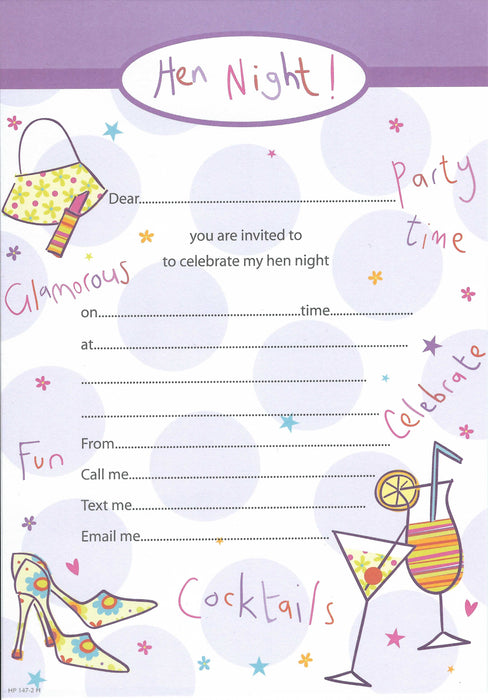 Hen Night!
Party
time
Dear..........
you are invited to
to celebrate my hen night
Glamorous
on..........time..........
at..........
Celebrate
From..........
Fun
Call me..........
Text me..........
Email me..........
Cocktails
HP 147-2 H